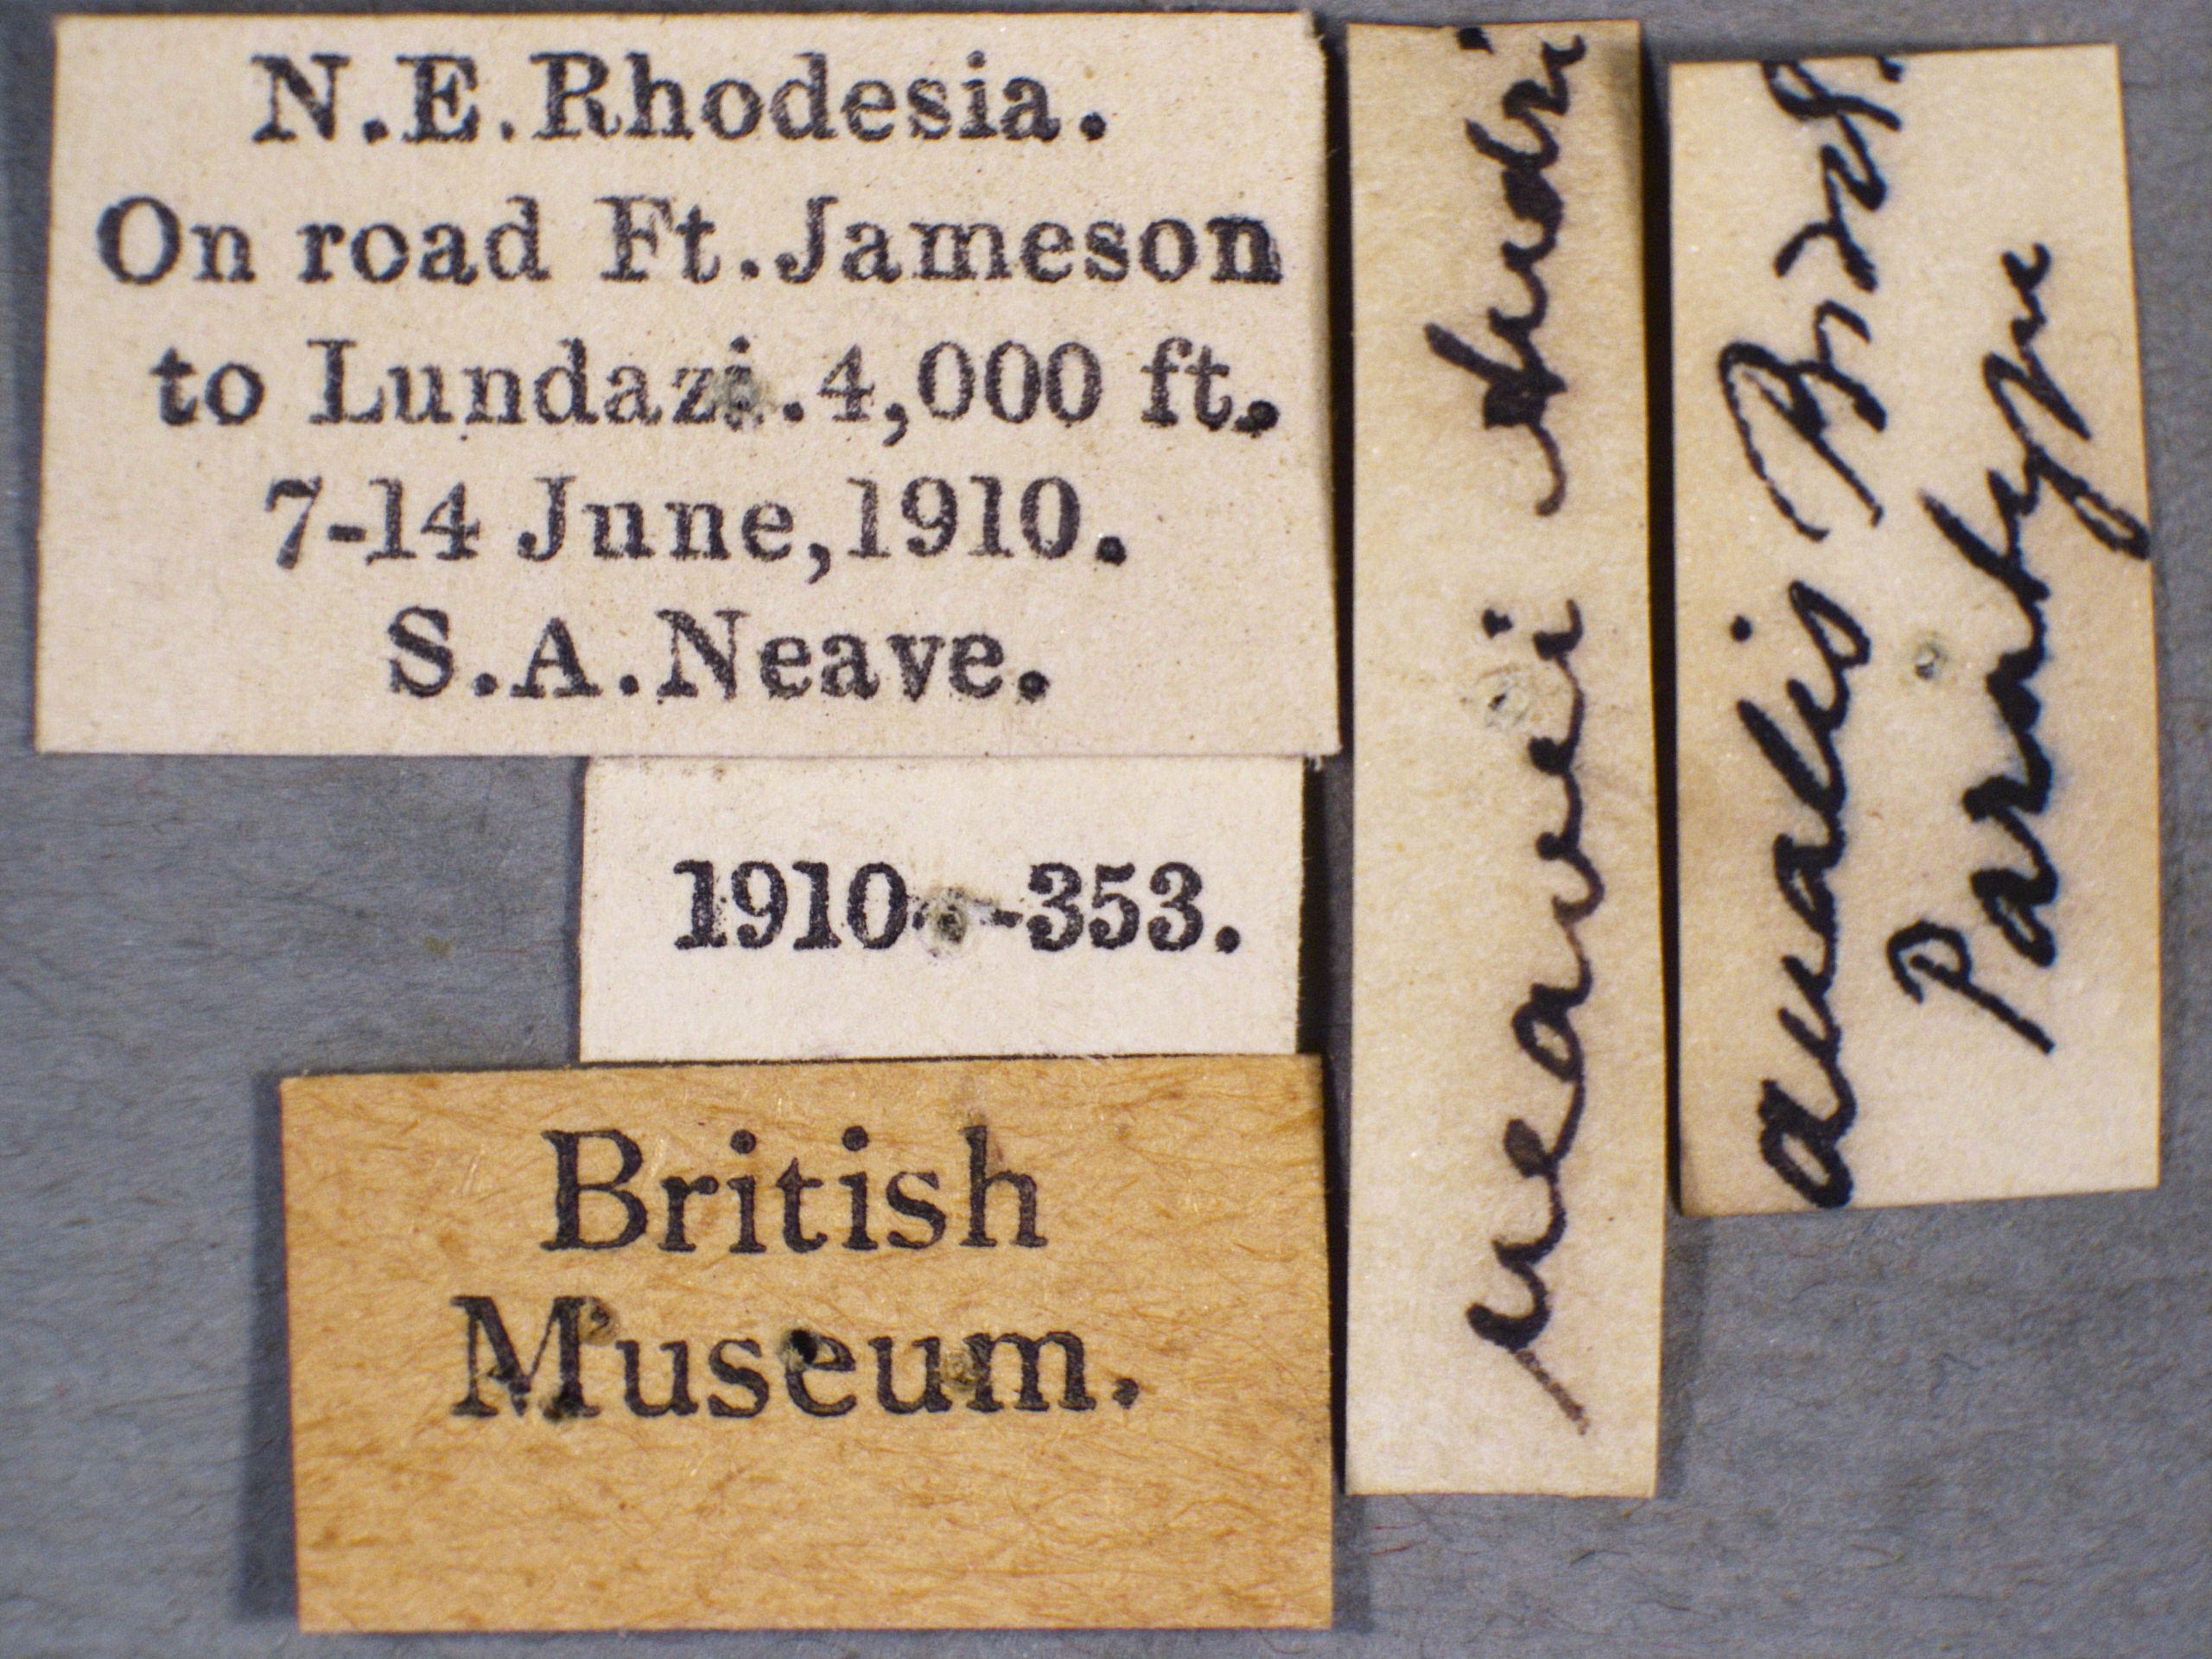 N.E.Rhodesia.
On road Ft.Jameson
to Lundazi.4,000 ft.
7-14 June,1910.
S.A.Neave.
1910--353.
British
Museum.
neavei
analis
Paratype